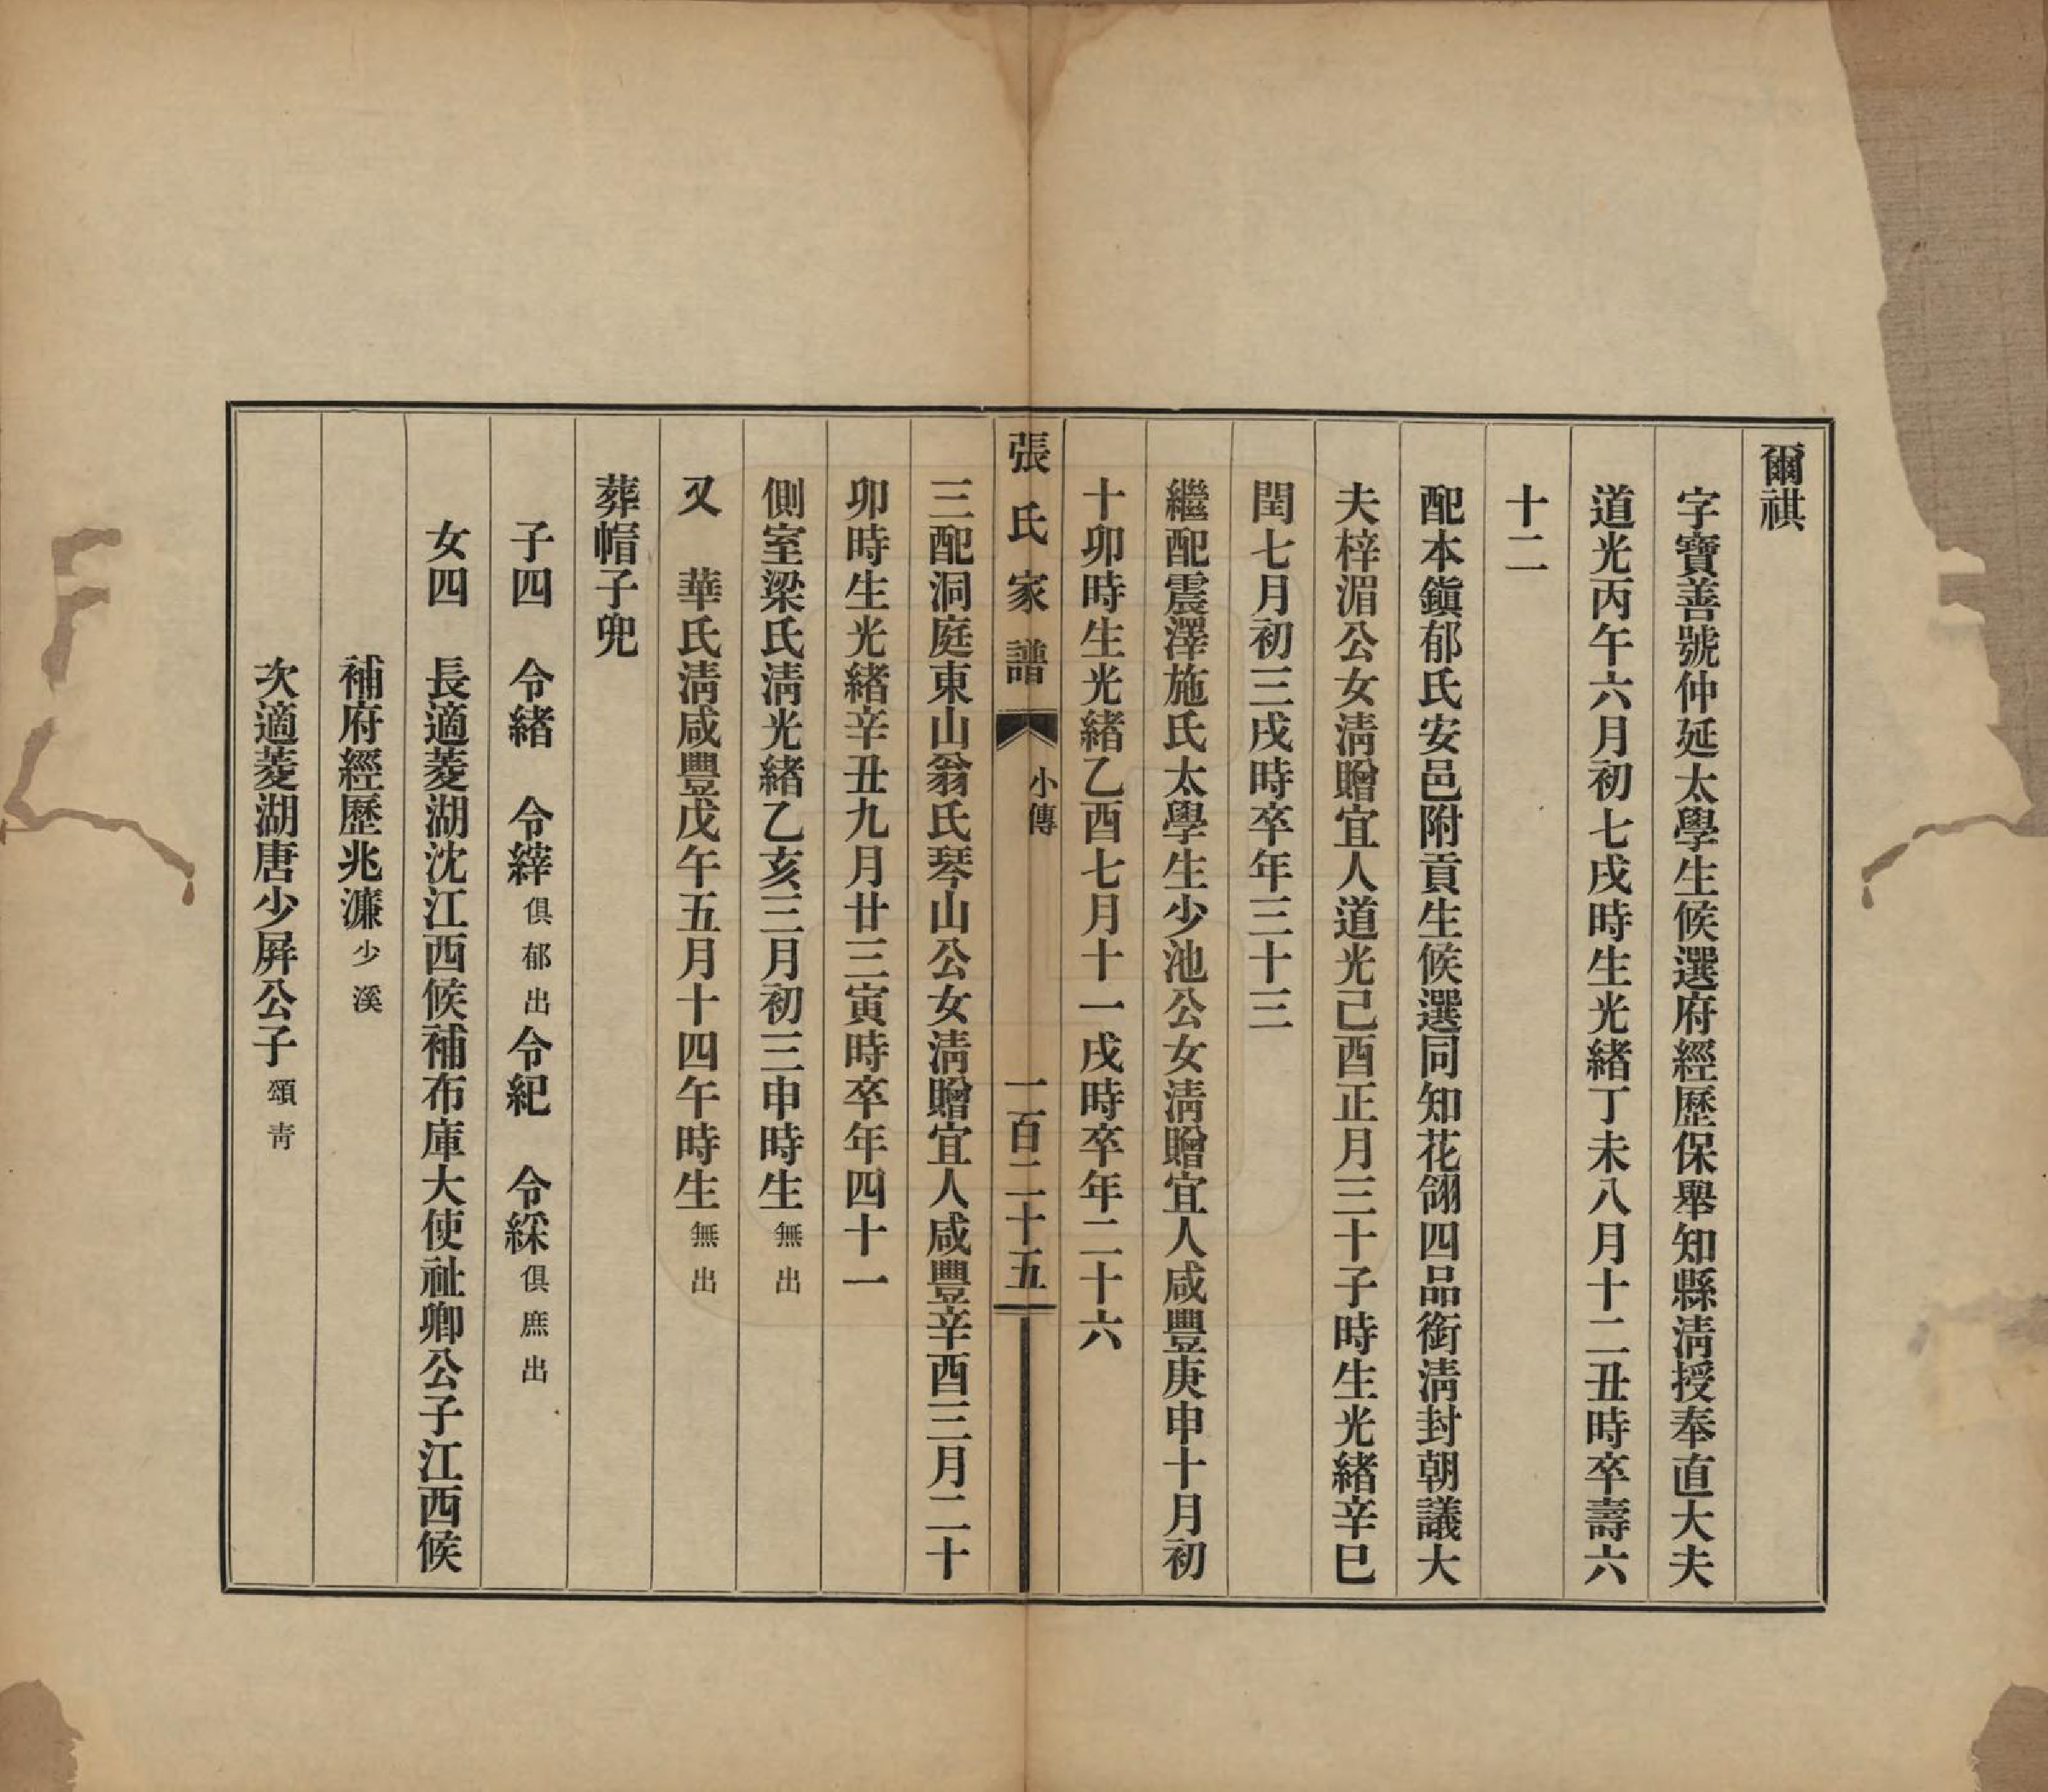 爾祺
字寶善號仲延太學生候選府經歷保舉知縣淸授奉直大夫
道光丙午六月初七戌時生光緒丁未八月十二丑時卒壽六
十二
配本鎭郁氏安邑附貢生候選同知花翎四品銜淸封朝議大
夫梓湄公女淸贈宜人道光己酉正月三十子時生光緒辛巳
閏七月初三戌時卒年三十三
繼配震澤施氏太學生少池公女淸贈宜人咸豐庚申十月初
十卯時生光緒乙酉七月十一戌時卒年二十六
張氏家譜 小傳 一百二十五
三配洞庭東山翁氏琴山公女淸贈宜人咸豐辛酉三月二十
卯時生光緒辛丑九月廿三寅時卒年四十一
側室梁氏淸光緒乙亥三月初三申時生無出
又 華氏淸咸豐戊午五月十四午時生無出
葬帽子兜
子四 令緒 令縡俱郁出令紀 令綵俱庶出
女四 長適菱湖沈江西候補布庫大使祉卿公子江西候
補府經歷兆濂少溪
次適菱湖唐少屛公子頌靑